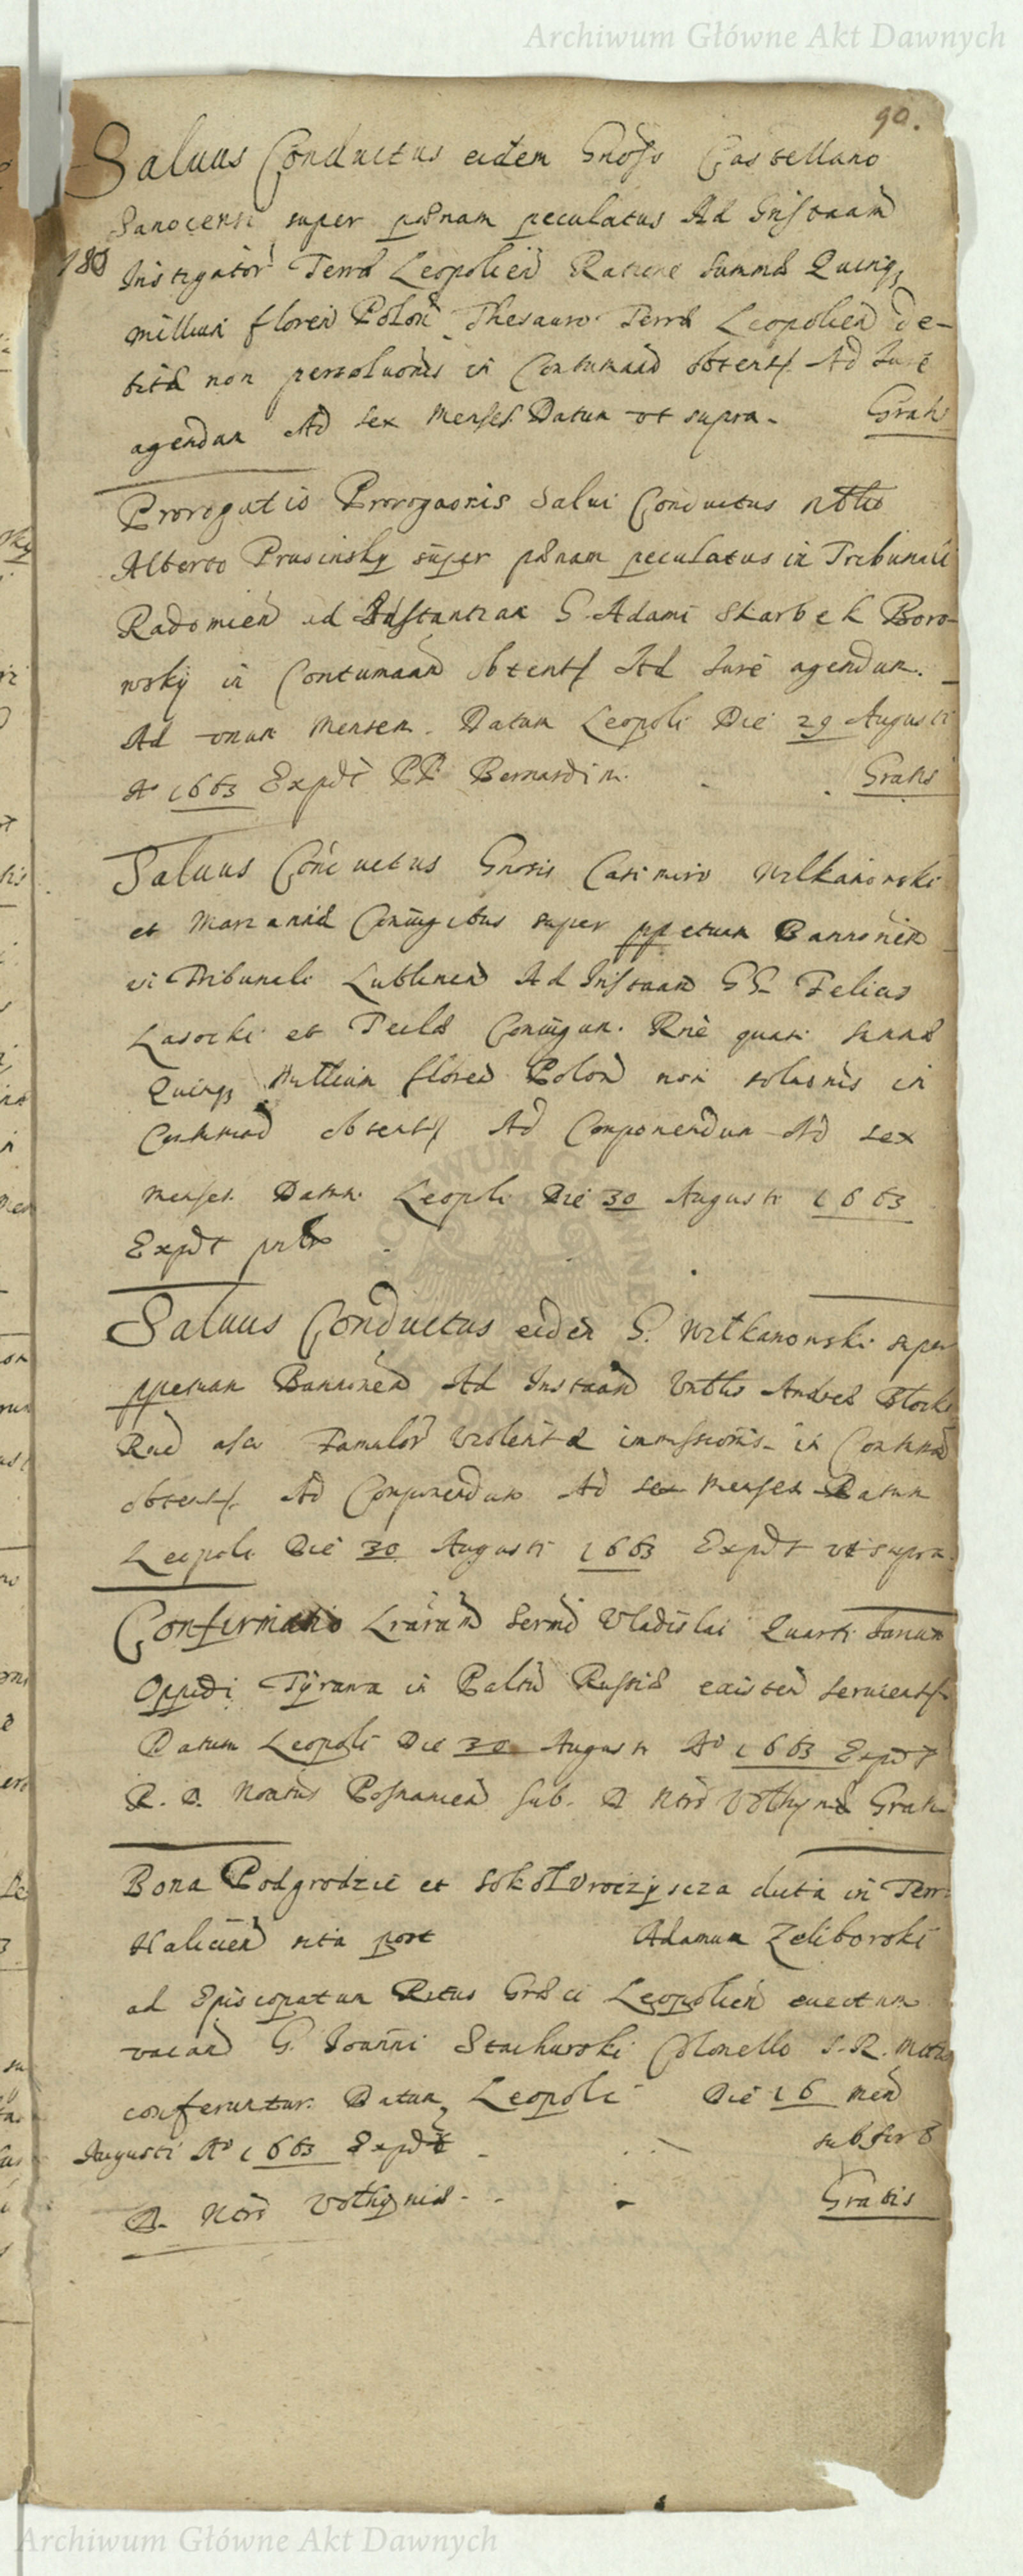 Archiwum Główne Akt Dawnych
90.
Saluus Conductus eidem Gnoso Castellano
Sanocensi super pænam peculatus Ad Instaam
180
Instigator Terræ Leopolien Ratione Summæ Quinq
millium floren Polon Thesauro Terræ Leopolien de-
bitæ non persoluonis in Contumaad obtent Ad Jure
agendum Ad sex Menses Datum vt supra. Gratis
Prorogatio Prorogaonis Salui Conductus Nbtto
Alberto Prusinsky super pænam peculatus in Tribunali
Radomien ad Instantiam G. Adami Skarbek Boro-
wsky in Contumaad obtent Ad Jure agendum.
Ad vnum Mensem. Datum Leopoli Die 29 Augusti
Ao 1663 Expdt PP. Bernardin. Gratis
Saluus Conductus Gnosis Casimiro Wilkanowski
et Mariannæ Coniugibus super ppetuam Bannonen
in Tribunali Lublinen Ad Instaam GG. Felicis
Lasocki et Teclæ Coniugum. Rne quasi Summæ
Quinq Millium floren Polon non soluonis in
obtent Ad Componendum Ad sex
Menses. Datum. Leopoli Die 30 Augusti 1663
Expdt
Saluus Conductus eidem G. Wilkanowski super
ppetuam Bannonen Ad Instaam Nbtto Andreæ Blocki
Rne Famulor violentæ immissionis in
obtent Ad Componendum Ad sex Menses Datum
Leopoli Die 30 Augusti 1663 Expdt vt supra
Confirmatio Lrarum Sermi Vladislai Quarti
Oppidi Tyrawa in Palttu Russiæ existen seruient
Datum Leopoli Die 30 Augusti Ao 1663 Expdt
R. D. Noatus Posnanien sub. R Noro Vothyniæ Gratis
Bona Podgrodzie et Sokol Vroczyscza dicta in Terr
Halicien sita post Adamum Zeliborski
ad Episcopatum Ritus Græci Leopolien euectum
vacan G. Joanni Stachurski Colonello S. R. Mttis
conferuntur. Datum Leopoli Die 16 Men
Augusti Ao 1663 Expdt
R. Noro Vothyniæ. Gratis
Archiwum Główne Akt Dawnych